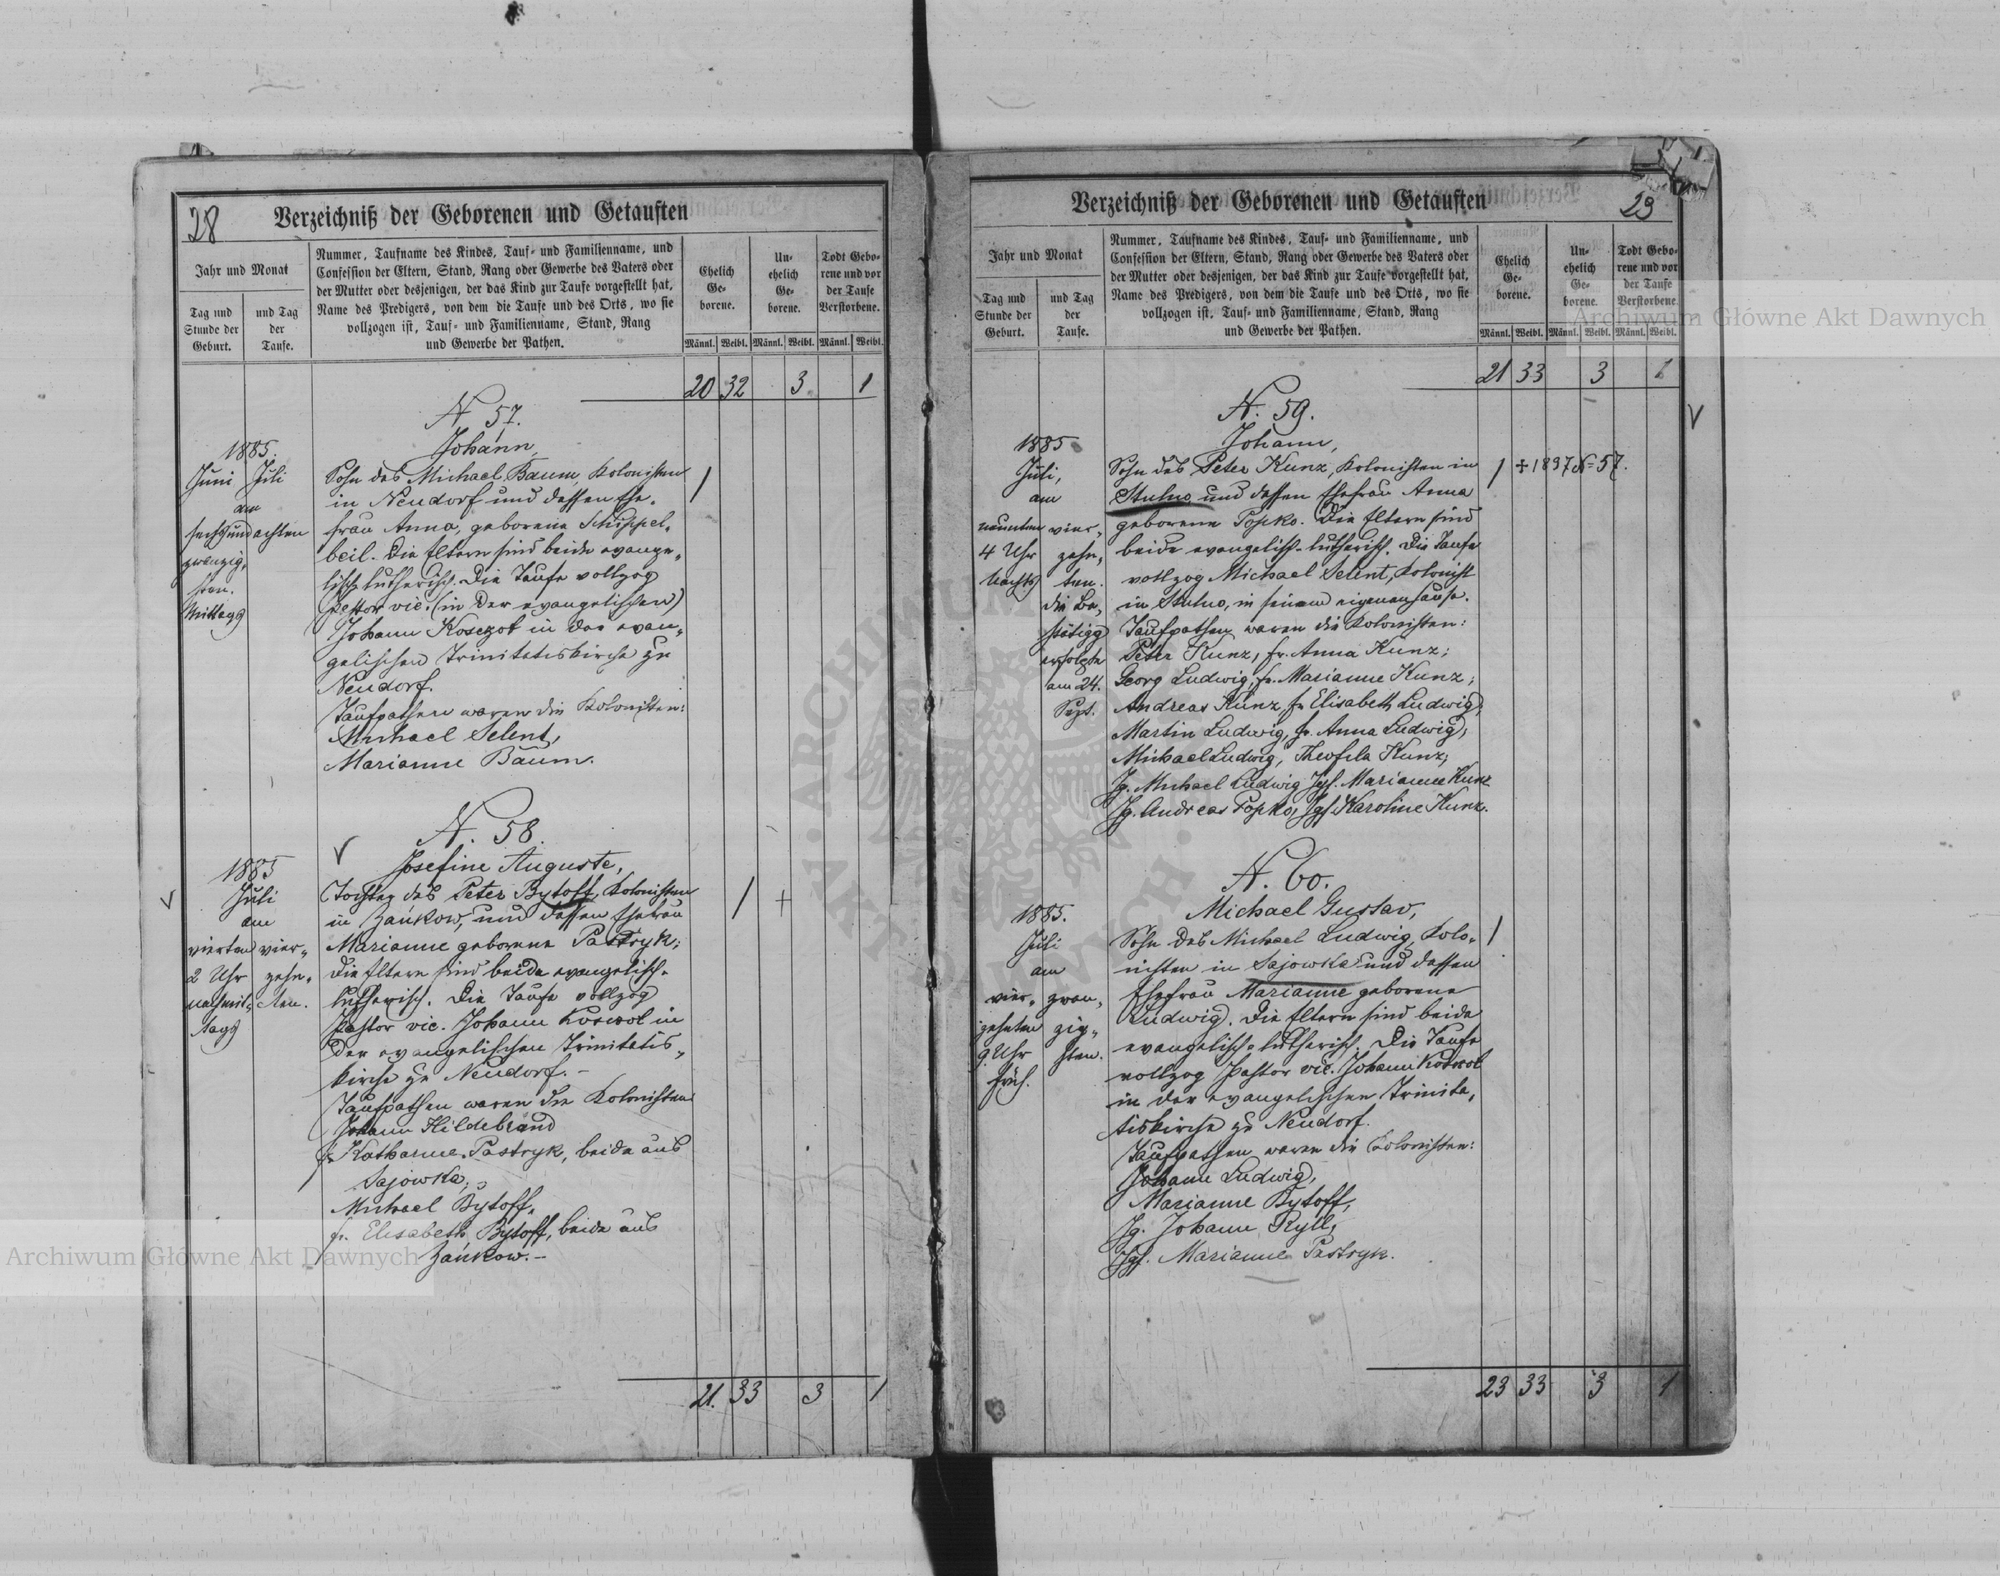 28
Verzeichniß der Geborenen und Getauften
Jahr und Monat
Tag und Stunde der Geburt.
und Tag der Taufe.
Nummer, Taufname des Kindes, Tauf- und Familienname, und
Confession der Eltern, Stand, Rang oder Gewerbe des Vaters oder
der Mutter oder desjenigen, der das Kind zur Taufe vorgestellt hat,
Name des Predigers, von dem die Taufe und des Orts, wo sie
vollzogen ist, Tauf- und Familienname, Stand, Rang
und Gewerbe der Pathen.
Ehelich Ge- borene.
Un- ehelich Ge- borene.
Todt Gebo- rene und vor der Taufe Verstorbene.
Männl. Weibl. Männl. Weibl. Männl. Weibl.
20 32 3 1
N. 57.
Johann,
1885.
Juni Juli
am
sechsund achten
zwanzig-
sten.
Mittags
Sohn des Michael Baum, Kolonisten
in Neudorf und dessen Ehe-
frau Anna, geborene Schüppel-
beil. Die Eltern sind beide evange-
lisch-lutherisch. Die Taufe vollzog
Pastor vic. (in der evangelischen)
Johann Kosczol in der evan-
gelischen Trinitatiskirche zu
Neudorf.
Taufpathen waren die Kolonisten:
Michael Selent,
Marianne Baum.
N. 58.
Josefine Auguste,
1885
Juli
am
vierten vier-
2 Uhr zehn-
nachmit- ten.
tags
Tochter des Peter Bytoff, Kolonisten
in Zańkow, und dessen Ehefrau
Marianne geborene Pastryk;
Die Eltern sind beide evangelisch-
lutherisch. Die Taufe vollzog
Pastor vic. Johann Kosczol in
der evangelischen Trinitatis-
kirche zu Neudorf. –
Taufpathen waren die Kolonisten
Johann Hildebrand
fr. Katharine Pastryk, beide aus
Sajowka;
Michael Bytoff,
fr. Elisabeth Bytoff, beide aus
Zańkow. –
21. 33 3 1
29
Verzeichniß der Geborenen und Getauften
Jahr und Monat
Tag und Stunde der Geburt.
und Tag der Taufe.
Nummer, Taufname des Kindes, Tauf- und Familienname, und
Confession der Eltern, Stand, Rang oder Gewerbe des Vaters oder
der Mutter oder desjenigen, der das Kind zur Taufe vorgestellt hat,
Name des Predigers, von dem die Taufe und des Orts, wo sie
vollzogen ist, Tauf- und Familienname, Stand, Rang
und Gewerbe der Pathen.
Ehelich Ge- borene.
Un- ehelich Ge- borene.
Todt Gebo- rene und vor der Taufe Verstorbene.
Männl. Weibl. Männl. Weibl. Männl. Weibl.
21 33 3 1
N. 59.
Johann,
1885
Juli,
am
neunten vier-
4 Uhr zehn-
Nachts ten.
die Be-
stätigg
erfolgte
am 24.
Sept.
Sohn des Peter Kunz, Kolonisten in
Stulno und dessen Ehefrau Anna
geborene Popko. Die Eltern sind
beide evangelisch-lutherisch. Die Taufe
vollzog Michael Selent, Kolonist
in Stulno, in seinem eigenen Hause.
Taufpathen waren die Kolonisten:
Peter Kunz, fr. Anna Kunz;
Georg Ludwig, fr. Marianne Kunz;
Andreas Kunz, fr. Elisabeth Ludwig;
Martin Ludwig, fr. Anna Ludwig;
Michael Ludwig, Theofila Kunz;
Jg. Michael Ludwig Jgf. Marianne Kunz
Jg. Andreas Popko, Jgf. Karoline Kunz.
✝ 1897 N= 57.
N. 60.
Michael Gustav,
1885.
Juli
am
vier- zwan-
zehnten zig-
9 Uhr sten.
früh.
Sohn des Michael Ludwig, Kolo-
nisten in Sajowka und dessen
Ehefrau Marianne geborene
Ludwig. Die Eltern sind beide
evangelisch-lutherisch. Die Taufe
vollzog Pastor vic. Johann Kosczol
in der evangelischen Trinita-
tiskirche zu Neudorf.
Taufpathen waren die Colonisten:
Johann Ludwig,
Marianne Bytoff,
Jg. Johann Ryll,
Jgf. Marianne Pastryk.
23 33 3 1
Archiwum Główne Akt Dawnych
Archiwum Główne Akt Dawnych